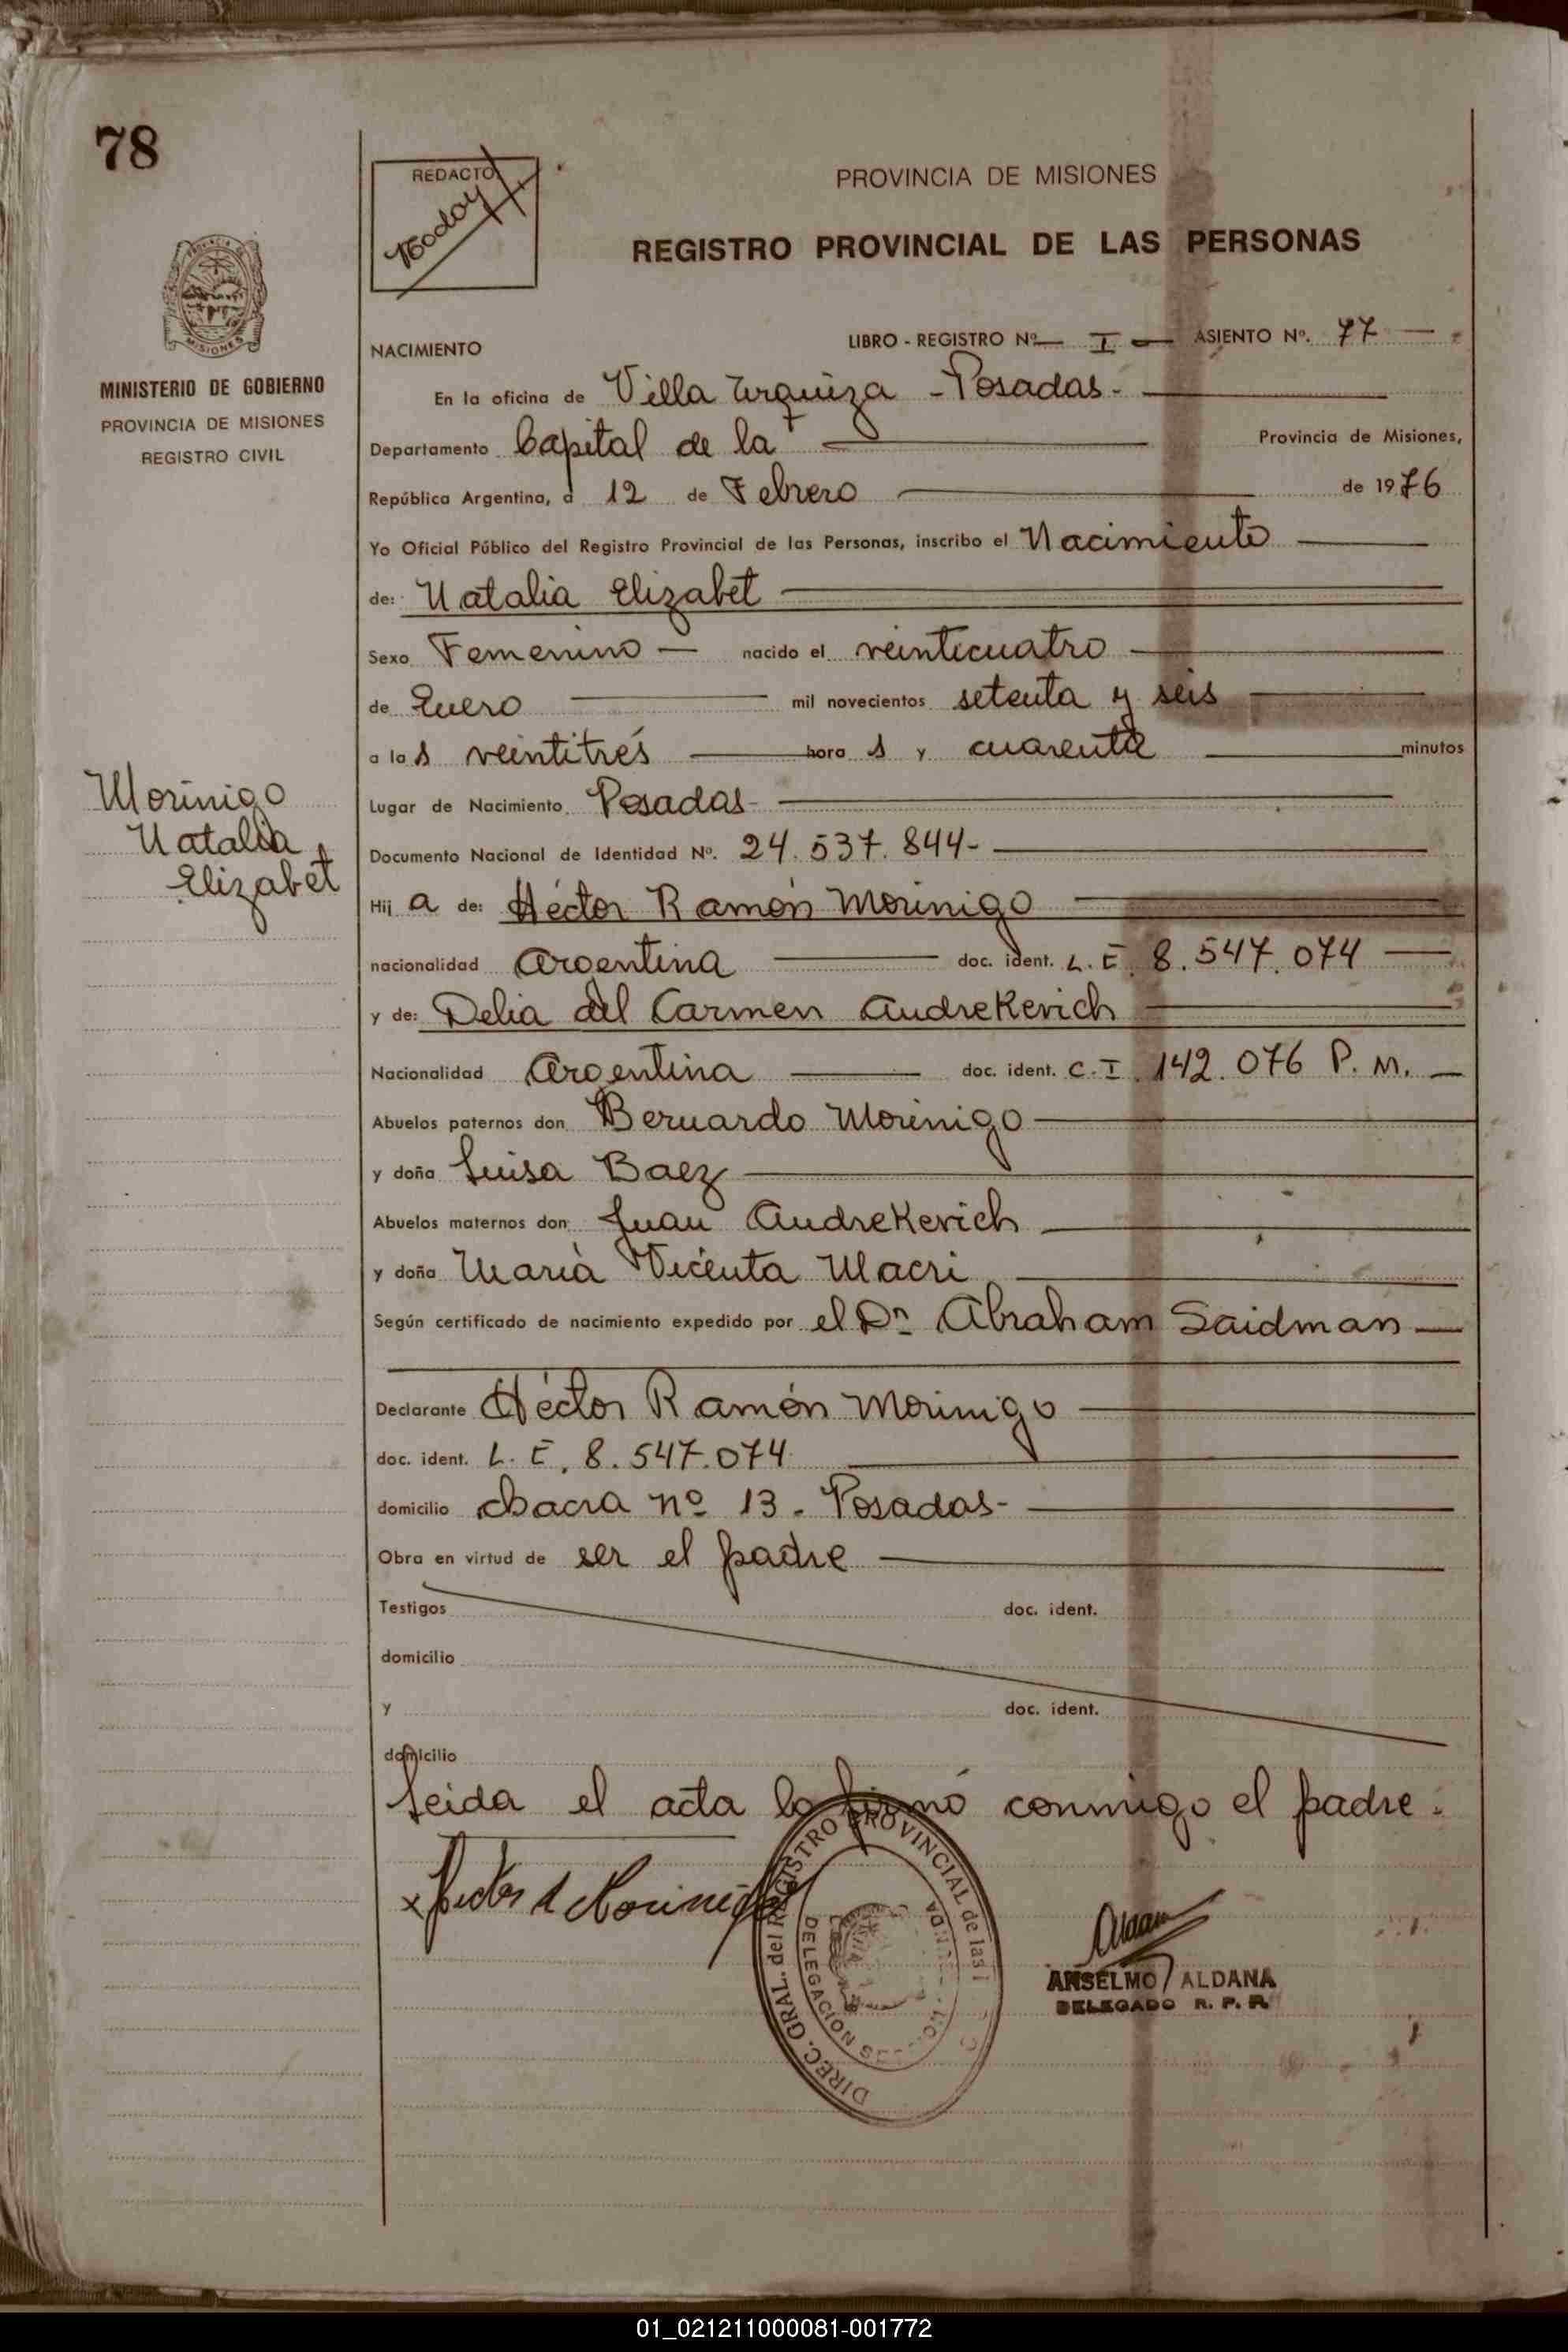 78
REDACTO
Godoy
PROVINCIA DE MISIONES
REGISTRO PROVINCIAL DE LAS PERSONAS
MISIONES
MINISTERIO DE GOBIERNO
PROVINCIA DE MISIONES
REGISTRO CIVIL
NACIMIENTO
LIBRO - REGISTRO Nº I ASIENTO Nº. 77
En la oficina de Villa Urquiza - Posadas -
Departamento Capital de la Provincia de Misiones,
República Argentina, a 12 de Febrero de 1976
Yo Oficial Público del Registro Provincial de las Personas, inscribo el Nacimiento
de: Natalia Elizabet
Sexo Femenino nacido el veinticuatro
de Enero mil novecientos setenta y seis
a las veintitrés horas y cuarenta minutos
Lugar de Nacimiento Posadas -
Morinigo
Natalia
Elizabet
Documento Nacional de Identidad Nº. 24.537.844 -
Hija de: Héctor Ramón Morinigo
nacionalidad Argentina doc. ident. L.E. 8.547.074
y de: Delia del Carmen Andrekevich
Nacionalidad Argentina doc. ident. C.I. 142.076 P.M.
Abuelos paternos don Bernardo Morinigo
y doña Luisa Baez
Abuelos maternos don Juan Andrekevich
y doña María Vicenta Macri
Según certificado de nacimiento expedido por el Dr. Abraham Saidman
Declarante Héctor Ramón Morinigo
doc. ident. L.E. 8.547.074
domicilio chacra nº 13 - Posadas -
Obra en virtud de ser el padre
Testigos doc. ident.
domicilio
y doc. ident.
domicilio
Leida el acta la firmó conmigo el padre.
x Hector R Morinigo
DIREC. GRAL. del REGISTRO PROVINCIAL de las
DELEGACION
ANSELMO ALDANA
DELEGADO R. P. P.
01_021211000081-001772